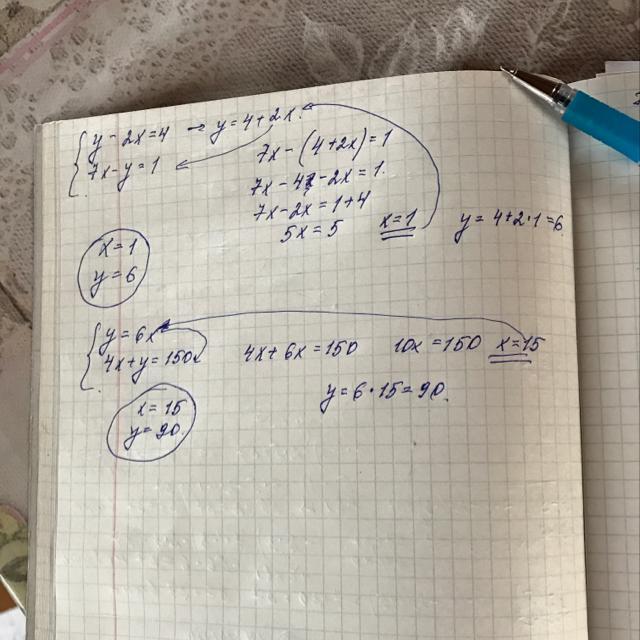 y - 2x = 4 → y = 4 + 2x.
7x - y = 1
7x - (4 + 2x) = 1
7x - 4 - 2x = 1.
7x - 2x = 1 + 4
5x = 5 x = 1 y = 4 + 2·1 = 6
x = 1
y = 6
y = 6x
4x + y = 150 4x + 6x = 150 10x = 150 x = 15
y = 6·15 = 90.
x = 15
y = 90